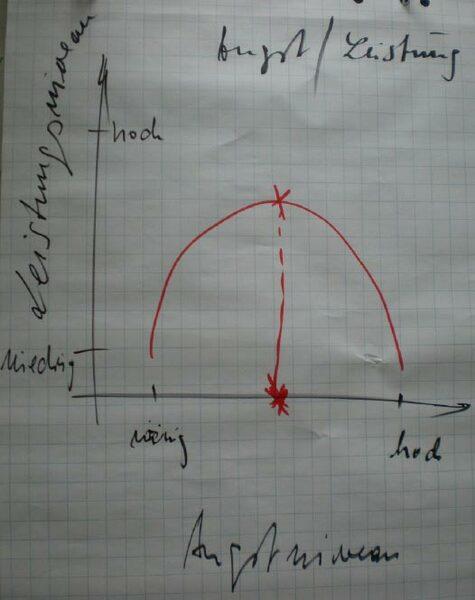 Angst/Leistung
Leistungsniveau
hoch
niedrig
hoch
Angstniveau